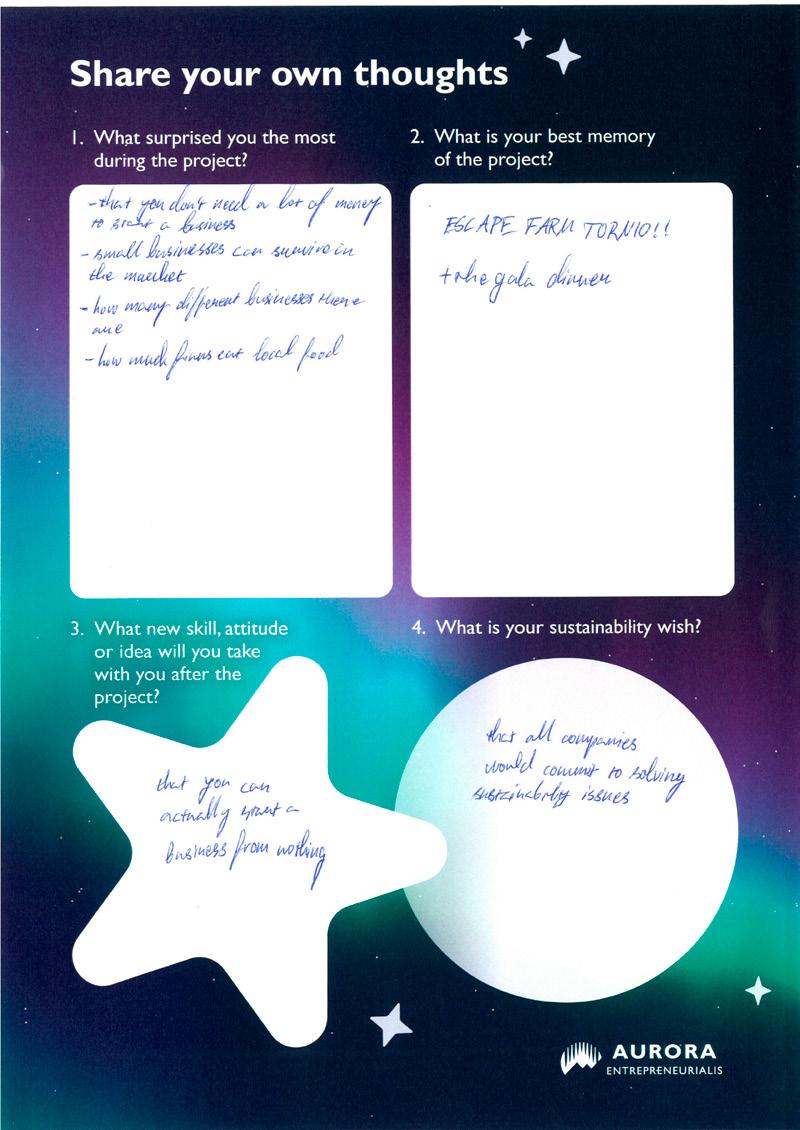 Share your own thoughts
1. What surprised you the most
during the project?
- that you don't need a lot of money
to start a business
- small businesses can survive in
the market
- how many different businesses there
are
- how much finns eat local food
2. What is your best memory
of the project?
ESCAPE FARM TORNIO!!
+ the gala dinner
3. What new skill, attitude
or idea will you take
with you after the
project?
that you can
actually start a
business from nothing
4. What is your sustainability wish?
that all companies
would commit to solving
sustainability issues
AURORA
ENTREPRENEURIALIS